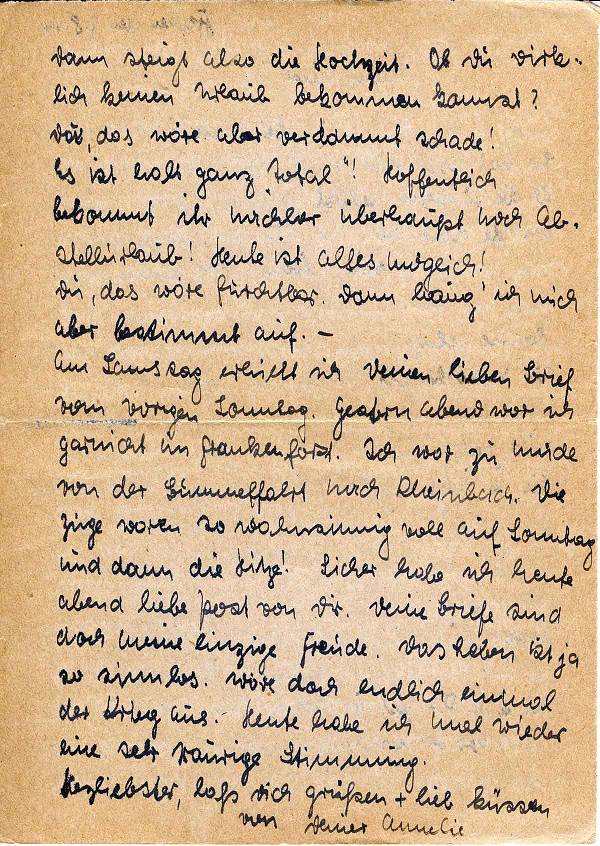 dann steigt also die Hochzeit. Ob Du wirk-
lich keinen Urlaub bekommen kannst?
Du, das wäre aber verdammt schade!
Es ist halt ganz „total"! Hoffentlich
bekommt ihr nachher überhaupt noch Ab-
stellurlaub! Heute ist alles möglich!
Du, das wäre furchtbar. Dann häng' ich mich
aber bestimmt auf. –
Am Samstag erhielt ich Deinen lieben Brief
vom vorigen Sonntag. Gestern abend war ich
garnicht in Frankenforst. Ich war zu müde
von der Bummelfahrt nach Rheinbach. Die
Züge waren so wahnsinnig voll auf Sonntag
und dann die Hitze! Sicher habe ich heute
abend liebe Post von Dir. Deine Briefe sind
doch meine einzige Freude. Das Leben ist ja
so sinnlos. Wäre doch endlich einmal
der Krieg aus. – Heute habe ich mal wieder
eine sehr traurige Stimmung.
Herzliebster, laß Dich grüßen + lieb küssen
von Deiner Annelie